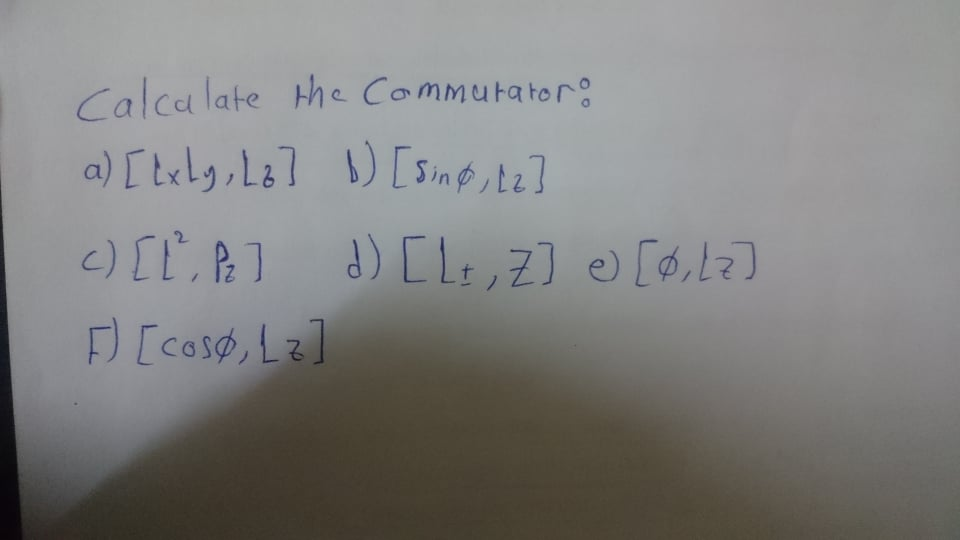 Calculate the Commutator:
a) [LxLy, Lz] b) [Sinφ, Lz]
c) [L², Pz] d) [L±, Z] e) [φ, Lz]
F) [cosφ, Lz]